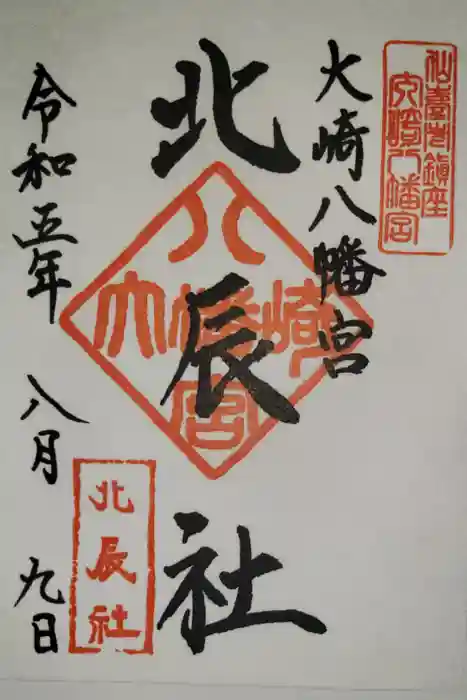 仙臺市鎮座
大崎八幡宮
大崎八幡宮
北辰社
八
大崎幡
宮
北辰社
令和五年 八月 九日